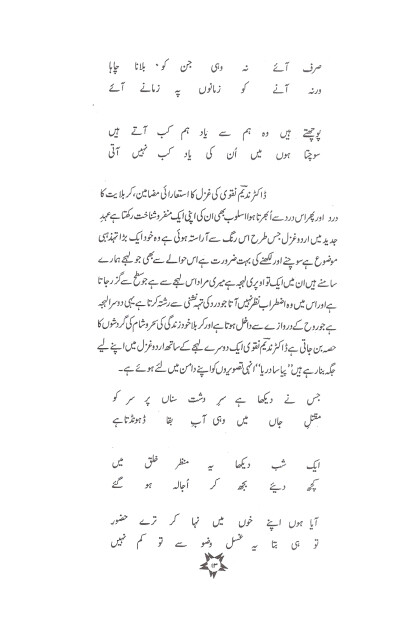 صرف آئے نہ وہی جن کو بلانا چاہا
ورنہ آنے کو زمانوں پہ زمانے آئے
پوچھتے ہیں وہ ہم سے یاد ہم کب آتے ہیں
سوچتا ہوں میں اُن کی یاد کب نہیں آتی
ڈاکٹر ندیم نقوی کی غزل کا استعاراتی مضامین، کربلایت کا
درد اور پھر اس درد سے اُبھرتا ہوا اسلوب بھی ان کی اپنی ایک منفرد شناخت رکھتا ہے عہدِ
جدید میں اردو غزل جس طرح اس رنگ سے آراستہ ہوئی ہے وہ خود ایک بڑا تہذیبی
موضوع ہے سوچنے اور لکھنے کی بہت ضرورت ہے اس حوالے سے بھی جو لہجے ہمارے
سامنے ہیں ان میں ایک تو اوپری لہجہ ہے میری مراد اس لہجے سے ہے جو سطح سے گزر جاتا
ہے اور اس میں وہ اضطراب نظر نہیں آتا جو درد کی تہہ نشینی سے رشتہ کرتا ہے یہی دوسرا لہجہ
ہے جو روح کے دروازے سے داخل ہوتا ہے اور کربلا خود زندگی کی سحر و شام کی گردشوں کا
حصہ بن جاتی ہے ڈاکٹر ندیم نقوی ایک دوسرے لہجے کے ساتھ اردو غزل میں اپنے لیے
جگہ بنا رہے ہیں "پیاسا دریا" انہی تصویروں کو اپنے دامن میں لئے ہوئے ہے۔
جس نے دیکھا ہے سرِ دشت سناں پر سر کو
مقتلِ جاں میں وہی آبِ بقا ڈھونڈتا ہے
ایک شب دیکھا یہ منظر خلق میں
کچھ دیئے بجھ کر اُجالہ ہو گئے
آیا ہوں اپنے خوں میں نہا کر ترے حضور
تو ہی بتا یہ غسل وضو سے تو کم نہیں
۱۳